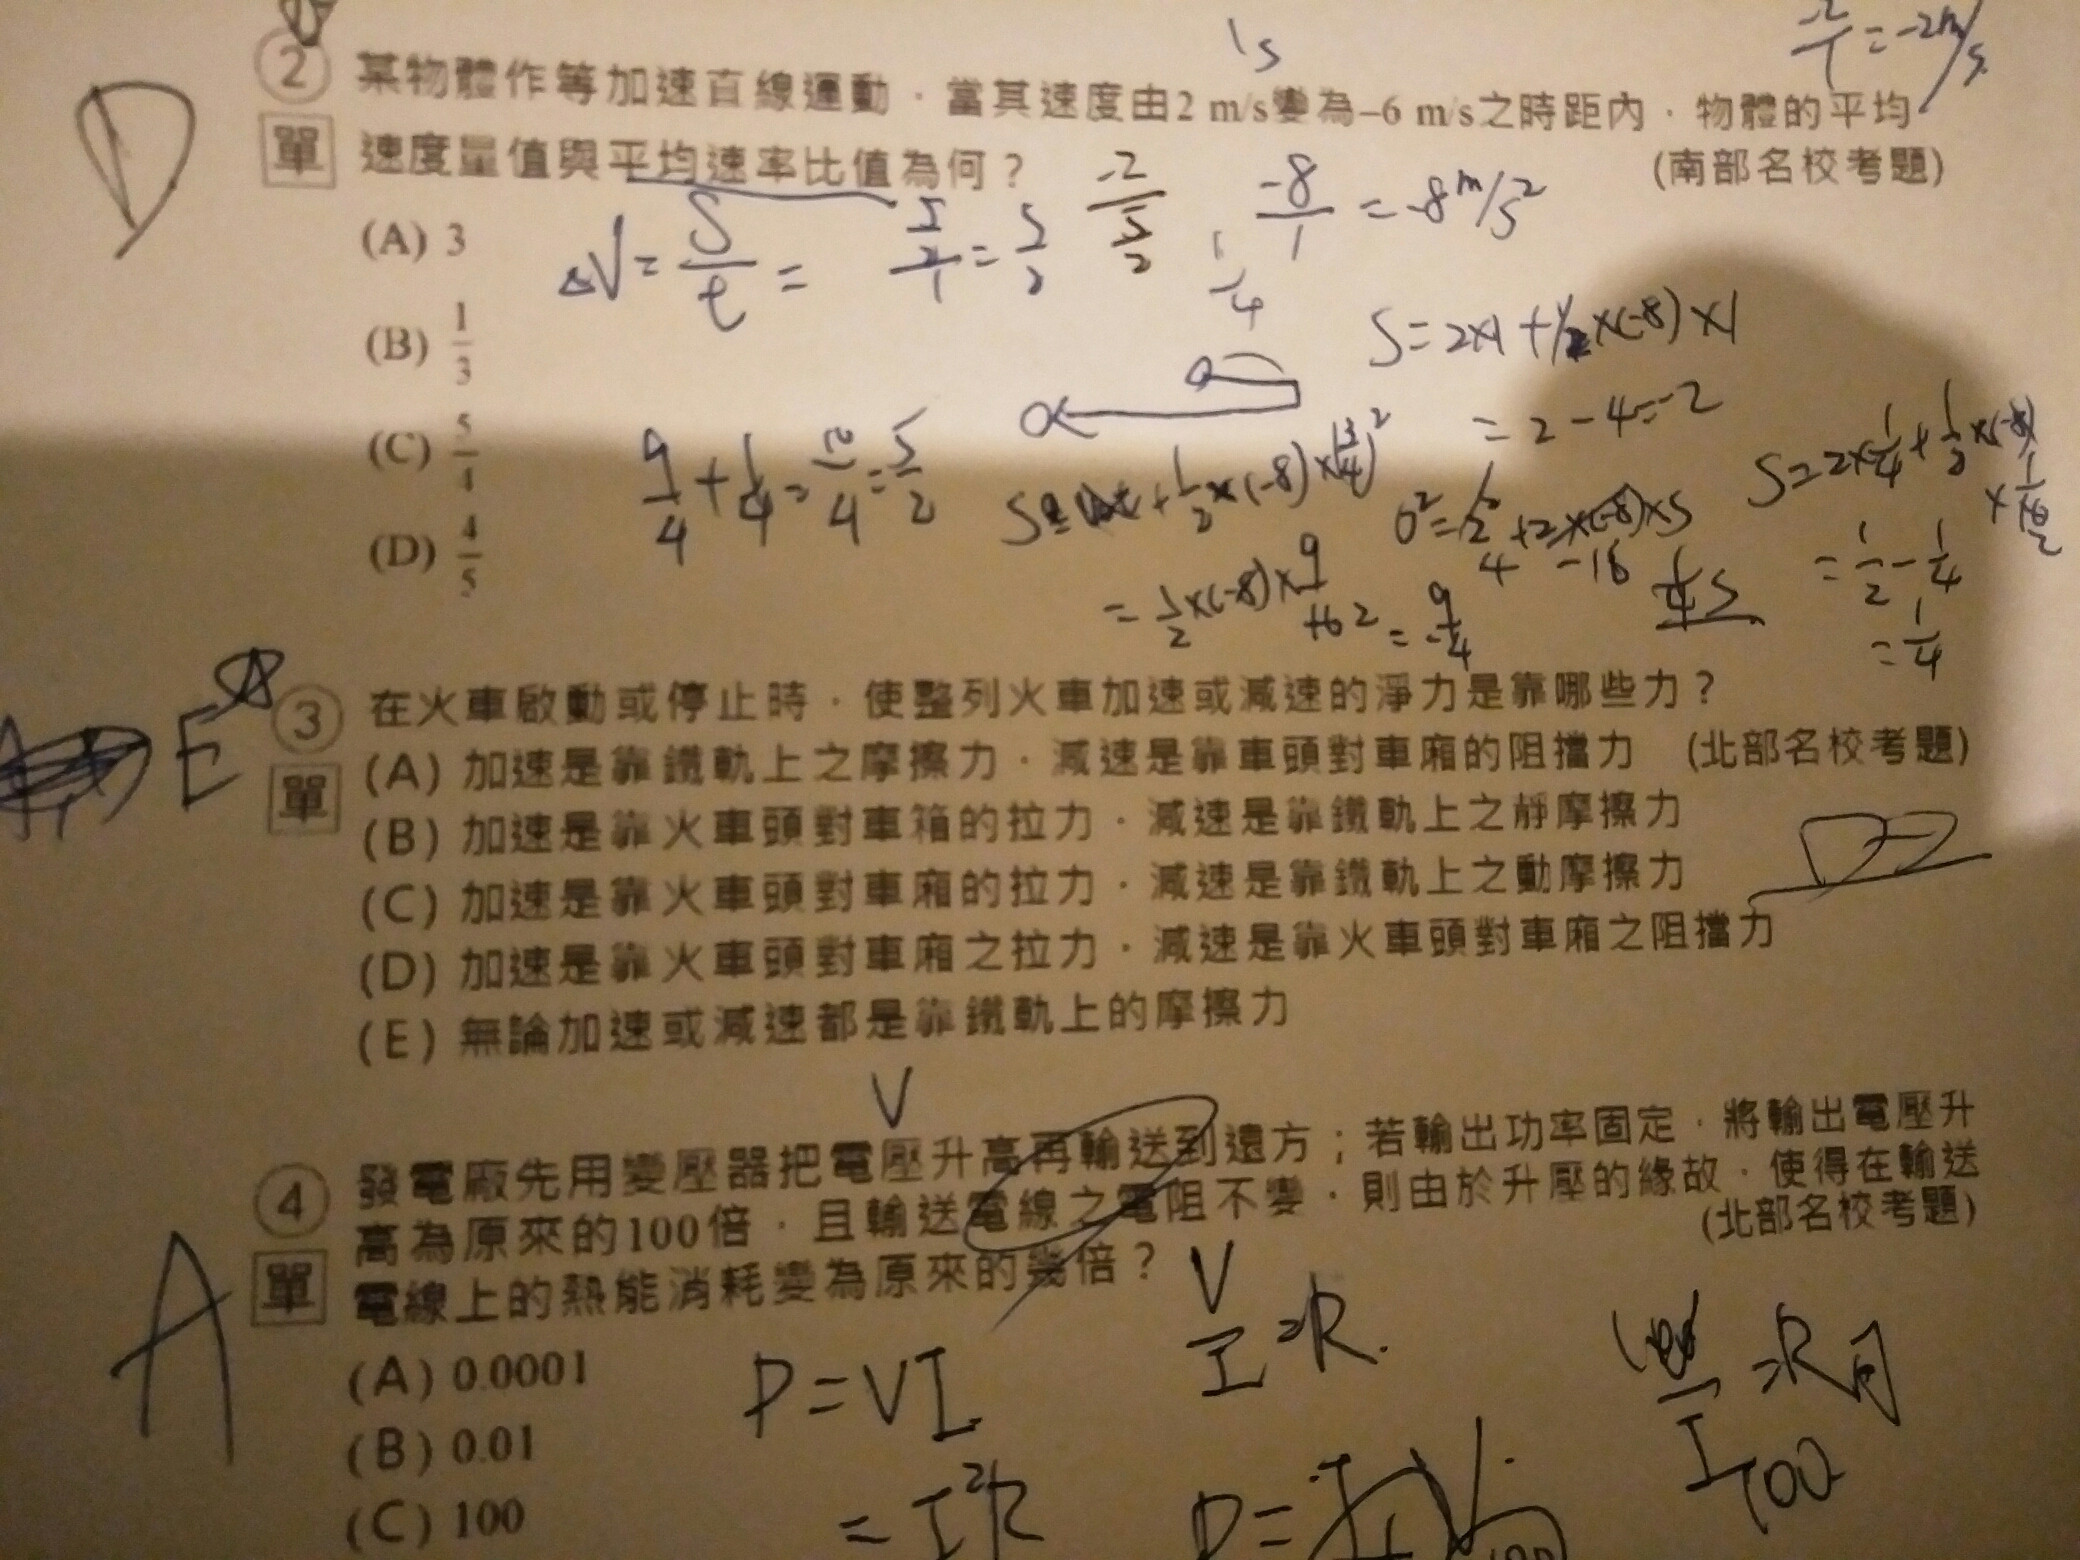 1s
-2/1 = -2m/s
② 某物體作等加速直線運動，當其速度由2 m/s變為–6 m/s之時距內，物體的平均
單 速度量值與平均速率比值為何？ (南部名校考題)
D
(A) 3
ΔV = S/t =
= 5/2
-8/1 = -8 m/s²
1/4
(B) 1/3
S = 2×1 + 1/2 × (-8) × 1
= 2 - 4 = -2
(C) 5/4
9/4 + 1/4 = 10/4 = 5/2
+ 1/2 × (-8) × (3/4)²
S = 2 × 1/4 + 1/2 × (-8) × 1/16
(D) 4/5
= 1/2 × (-8) × 9/16 = -9/4
= 1/2 - 1/4
= 1/4
E
③ 在火車啟動或停止時，使整列火車加速或減速的淨力是靠哪些力？
單 (A) 加速是靠鐵軌上之摩擦力，減速是靠車頭對車廂的阻擋力 (北部名校考題)
(B) 加速是靠火車頭對車箱的拉力，減速是靠鐵軌上之靜摩擦力
(C) 加速是靠火車頭對車廂的拉力，減速是靠鐵軌上之動摩擦力
(D) 加速是靠火車頭對車廂之拉力，減速是靠火車頭對車廂之阻擋力
(E) 無論加速或減速都是靠鐵軌上的摩擦力
V
④ 發電廠先用變壓器把電壓升高再輸送到遠方；若輸出功率固定，將輸出電壓升
單 高為原來的100倍，且輸送電線之電阻不變，則由於升壓的緣故，使得在輸送
電線上的熱能消耗變為原來的幾倍？ (北部名校考題)
A
(A) 0.0001
P = VI
V/I = R
(B) 0.01
(C) 100
= I²R
P =